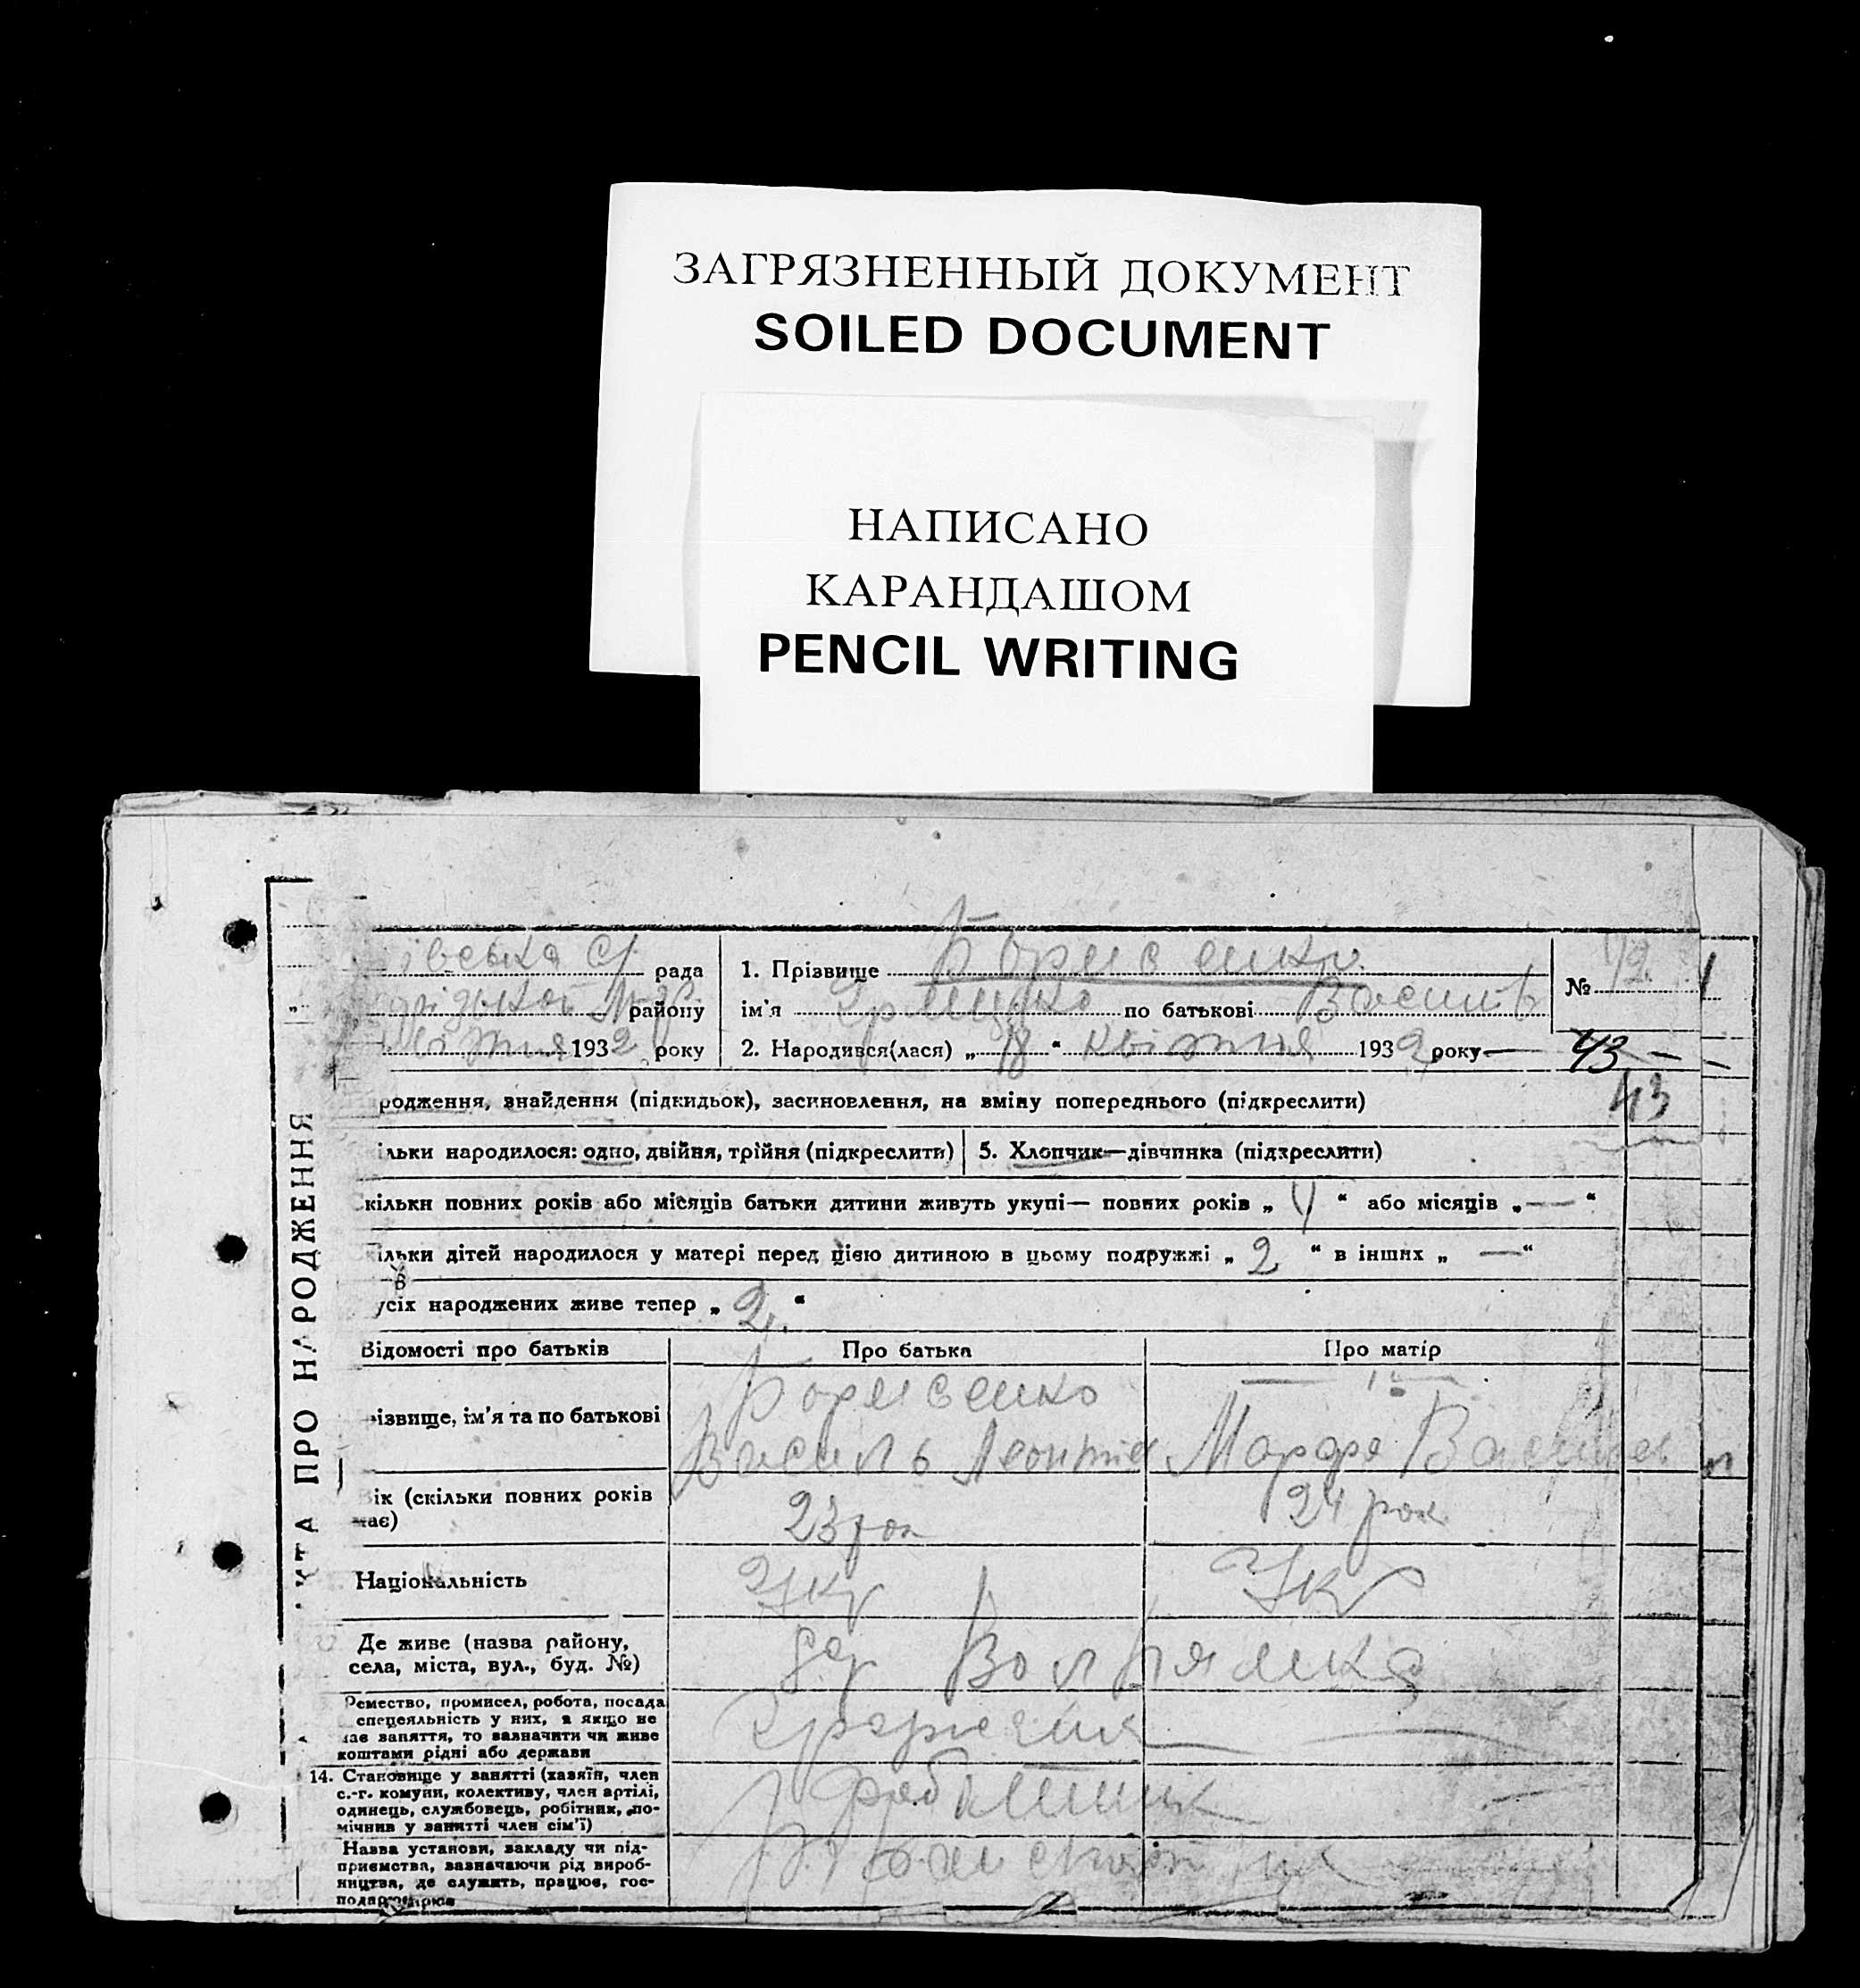 ЗАГРЯЗНЕННЫЙ ДОКУМЕНТ
SOILED DOCUMENT
НАПИСАНО
КАРАНДАШОМ
PENCIL WRITING
КТА ПРО НАРОДЖЕННЯ
івська рада
району
1932 року
1. Прізвище Борисенко
ім'я по батькові Васильів
2. Народився(лася) „18“ квітня 1932 року
№ 42
43
43
родження, знайдення (підкидьок), засиновлення, на зміну попереднього (підкреслити)
ільки народилося: одно, двійня, трійня (підкреслити)
5. Хлопчик—дівчинка (підкреслити)
кільки повних років або місяців батьки дитини живуть укупі— повних років „4“ або місяців „—“
ільки дітей народилося у матері перед цією дитиною в цьому подружжі „2“ в інших „—“
усіх народжених живе тепер „2“
Відомості про батьків
Про батька
Про матір
різвище, ім'я та по батькові
Борисенко
Василь Леонтів
Марфа Васил
Вік (скільки повних років має)
23 рок
24 рок
Національність
Укр
Укр
Де живе (назва району,
села, міста, вул., буд. №)
Ремество, промисел, робота, посада
спецеяльність у них, а якщо не
має заняття, то зазначити чи живе
коштами рідні або держави
14. Становище у занятті (хазяїн, член
с.-г. комуни, колективу, член артілі,
одинець, службовець, робітник, по-
мічнив у занятті член сім'ї)
робітник
Назва установи, закладу чи під-
приємства, зазначаючи рід вироб-
ництва, де служить, працює, гос-